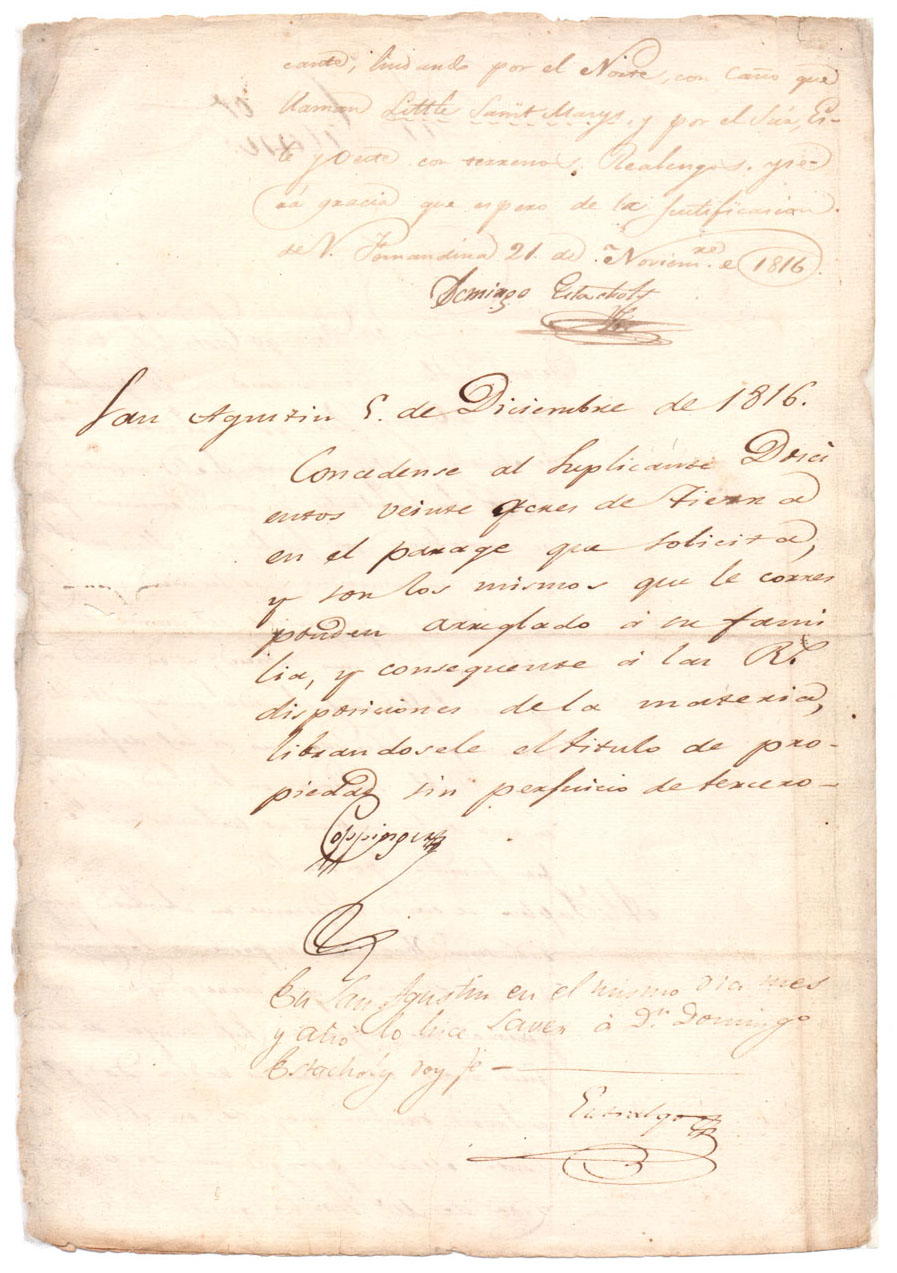 cante, lindando por el Norte, con Caño que
llaman Little Saint Marys, y por el Sur, Es-
te y Oeste con terrenos Realengos. y se-
rá gracia que espero de la justificacion
de V. Fernandina 21. de Noviem.re de 1816
Domingo Estacholy
San Agustin 5. de Diciembre de 1816.
Concedense al Suplicante Dosci
entos veinte acres de tierra
en el parage que solicita,
y son los mismos que le corres
ponden arreglado á su fami
lia, y consequente á las R.s
disposiciones de la materia,
librandosele el titulo de pro-
piedad sin perjuicio de tercero—
Coppinger
En San Agustin en el mismo dia mes
y año lo hice saver á D.n Domingo
Estacholy doy fe —
Entralgo